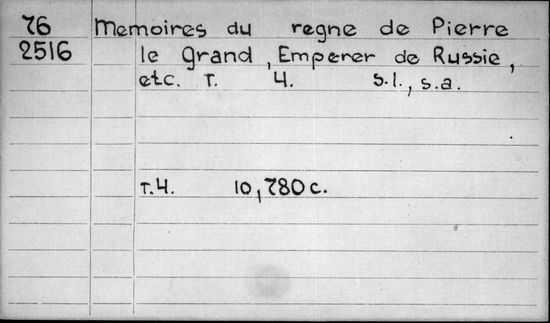 76 Memoires du regne de Pierre
2516 le Grand, Emperer de Russie,
etc. т. 4. s.l., s.a.
т.4. 10,780 с.